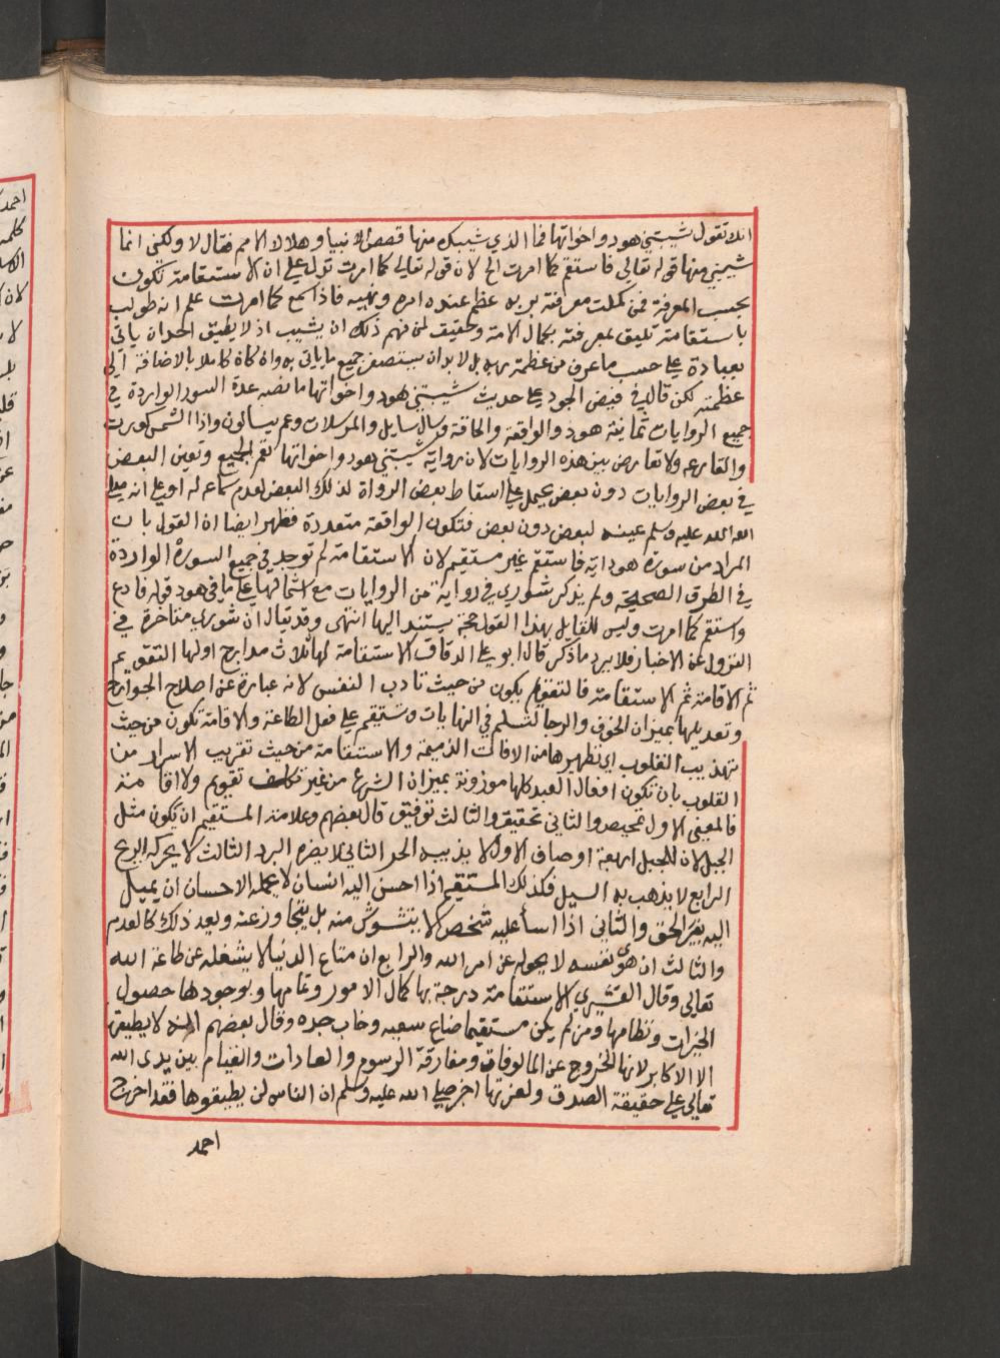 انك تقول شيبتني هود واخواتها فما الذي شيبك منها قصص الانبيا وهلاك الامم فقال لا ولكني انما
شيبني منها قوله تعالي فاستقم كما امرت الخ لان قوله تعالى كما امرت تدل علي ان الاستقامة تكون
بحسب المعرفة فمن كملت معرفته بربه عظم عنده امره ونهيه فاذا سمع كما امرت علم انه طولب
باستقامة تليق بمعرفته بكمال الامة وحقيق لمن فهم ذلك ان يشيب اذ لا يطيق احد ان ياتي
بعبادة علي حسب ما عرف من عظمة ربه بل لا بد ان يستصغر جميع ما ياتي به وان كان كاملا بالاضافة الي
عظمته لكن قال في فيض الجود علي حديث شيبتني هود واخواتها ما نصه عدة السور الواردة في
جميع الروايات ثمانية هود والواقعة والحاقة وسال سايل والمرسلات وعم يتسالون واذا الشمس كورت
والقارعه ولا تعارض بين هذه الروايات لان رواية شيبتني هود واخواتها تعم الجميع وتعين البعض
في بعض الروايات دون بعض يحمل علي اسقاط بعض الرواة لذلك البعض لعدم سماعه له او علي انه صلي
الله عليه وسلم عينه لبعض دون بعض فتكون الواقعة متعددة فظهر ايضا ان القول بان
المراد من سورة هود اية فاستقم غير مستقيم لان الاستقامة لم توجد في جميع السورة الواردة
في الطرق الصحيحة ولم يذكر شوري في رواية من الروايات مع اشتمالها علي ما في هود قوله فادع
واستقم كما امرت وليس للقايل بهذا القول حجة يستند اليها انتهى وقد يقال ان شوري متاخرة في
النزول عن الاخبار فلا يرد ما ذكر قال ابو علي الدقاق الاستقامة لها ثلاث مدارج اولها التقويم
ثم الاقامة ثم الاستقامة فالتقويم يكون من حيث تاديب النفس لانه عبارة عن اصلاح الجوارح
وتعديلها بميزان الخوف والرجا لتسلم في النهايات وتستقيم علي فعل الطاعة والاقامة تكون من حيث
تهذيب القلوب اي تطهيرها من الافات الذميمة والاستقامة من حيث تقريب الاسرار من
القلوب بان تكون افعال العبد كلها موزونة بميزان الشرع من غير تكلف تقويم ولا اقامة
فالمعنى الاول تمحيص والثاني تحقيق والثالث توفيق قال بعضهم وعلامة المستقيم ان يكون مثل
الجبل لان للجبل اربعة اوصاف الاول لا يذيبه الحر الثاني لا يضره البرد الثالث لا يحركه الريح
الرابع لا يذهب به السيل فكذلك المستقيم اذا احسن اليه انسان لا يحمله الاحسان ان يميل
اليه بغير الحق والثاني اذا اسا عليه شخص لا يتشوش منه بل يتجاوز عنه ويعد ذلك كالعدم
والثالث ان هوى نفسه لا يحوله عن امر الله والرابع ان متاع الدنيا لا يشغله عن طاعة الله
تعالي وقال القشيري الاستقامة درجة بها كمال الامور وتمامها وبوجودها حصول
الخيرات ونظامها ومن لم يكن مستقيما ضاع سعيه وخاب جده وقال بعضهم انه لا يطيقها
الا الاكابر لانها الخروج عن المالوفات ومفارقة الرسوم والعادات والقيام بين يدى الله
تعالي علي حقيقة الصدق ولعزتها اخبر صلي الله عليه وسلم ان الناس لن يطيقوها فقد اخرج
احمد